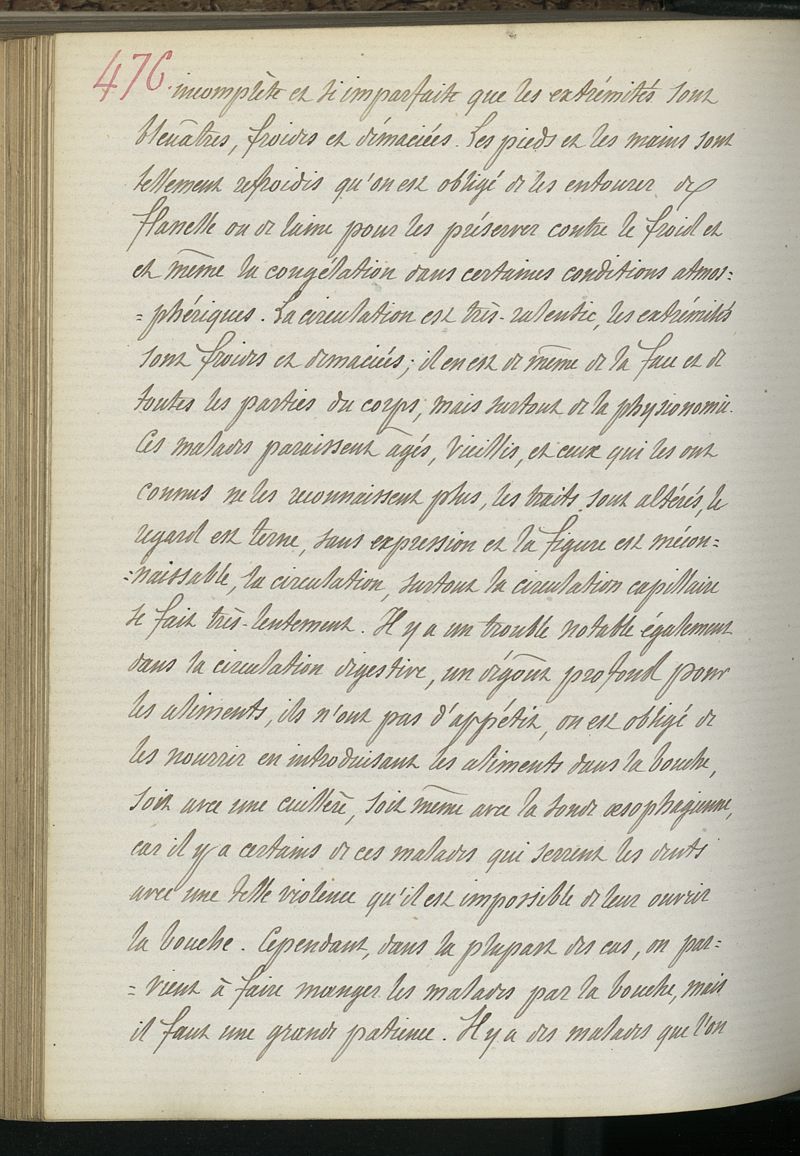 476.
incomplète et si imparfaite que les extrémités sont
bleuâtres, froides et émaciées. Les pieds et les mains sont
tellement refroidis qu'on est obligé de les entourer de
flanelle ou de laine pour les préserver contre le froid et
et même la congélation dans certaines conditions atmos=
=phériques. La circulation est très-ralentie, les extrémités
sont froides et émaciées; il en est de même de la face et de
toutes les parties du corps, mais surtout de la physionomie.
Ces malades paraissent âgés, vieillis, et ceux qui les ont
connus ne les reconnaissent plus, les traits sont altérés, le
regard est terne, sans expression et la figure est mécon=
=naissable, la circulation, surtout la circulation capillaire
se fait très-lentement. Il y a un trouble notable également
dans la circulation digestive, un dégoût profond pour
les aliments, ils n'ont pas d'appétit, on est obligé de
les nourrir en introduisant les aliments dans la bouche,
soit avec une cuillère, soit même avec la sonde œsophagienne,
car il y a certains de ces malades qui serrent les dents
avec une telle violence qu'il est impossible de leur ouvrir
la bouche. Cependant, dans la plupart des cas, on par=
=vient à faire manger les malades par la bouche, mais
il faut une grande patience. Il y a des malades que l'on